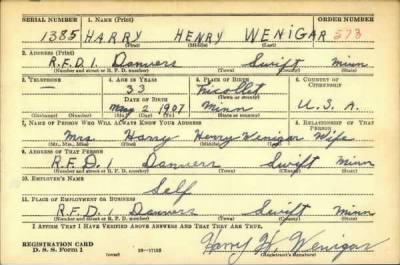 SERIAL NUMBER 1. NAME (Print) ORDER NUMBER
1385 HARRY HENRY WENIGAR 573
(First) (Middle) (Last)
2. ADDRESS (Print)
R.F.D. 1 Danvers Swift Minn
(Number and street or R. F. D. number) (Town) (County) (State)
3. TELEPHONE 4. AGE IN YEARS 5. PLACE OF BIRTH 6. COUNTRY OF CITIZENSHIP
— 33 Nicollet
DATE OF BIRTH (Town or county)
May 2 1907 Minn U.S.A.
(Mo.) (Day) (Yr.) (State or country)
7. NAME OF PERSON WHO WILL ALWAYS KNOW YOUR ADDRESS 8. RELATIONSHIP OF THAT PERSON
Mrs. Harry Henry Wenigar Wife
(Mr., Mrs., Miss) (First) (Middle) (Last)
9. ADDRESS OF THAT PERSON
R.F.D. 1 Danvers Swift Minn
(Number and street or R. F. D. number) (Town) (County) (State)
10. EMPLOYER'S NAME
Self
11. PLACE OF EMPLOYMENT OR BUSINESS
R.F.D. 1 Danvers Swift Minn
(Number and street or R. F. D. number) (Town) (County) (State)
I AFFIRM THAT I HAVE VERIFIED ABOVE ANSWERS AND THAT THEY ARE TRUE.
REGISTRATION CARD
D. S. S. Form 1 (over) Harry H. Wenigar
(Registrant's signature)